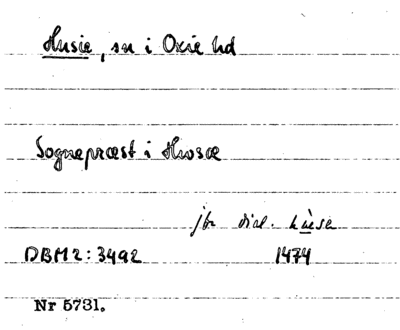 Husie, sn i Oxie hd
Sognepræst i Hwosæ
jfr dial. hùesa
DBM2:3492 1474
Nr 5731.